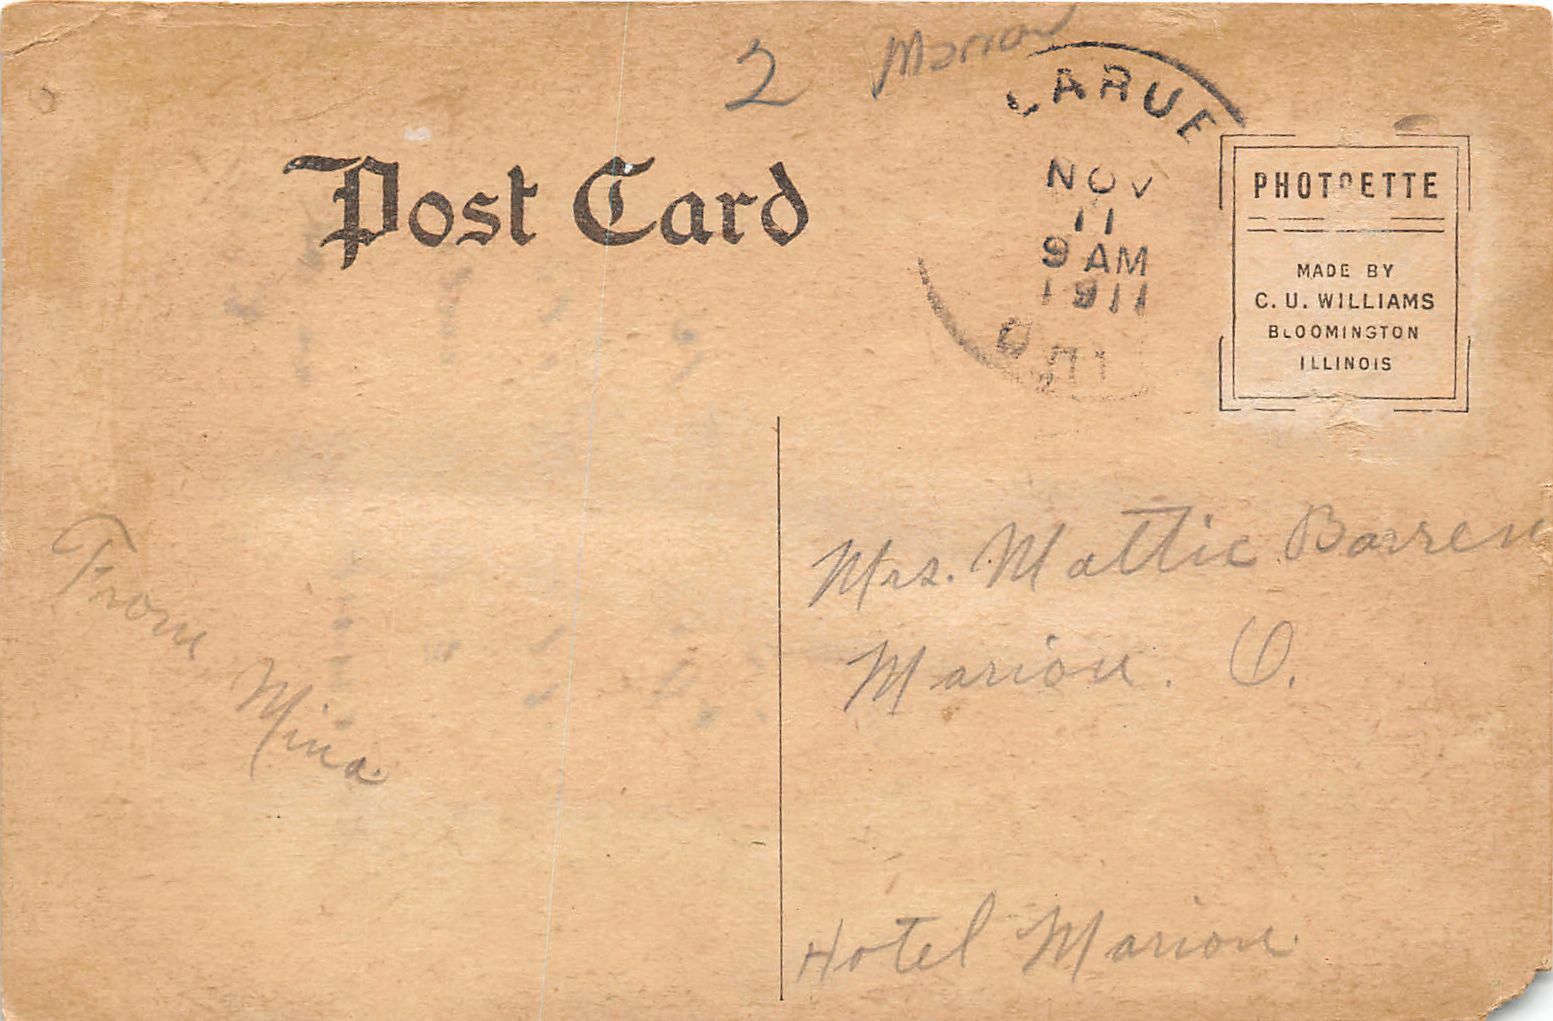 2 Marion
LARUE
NOV
11
9 AM
1911
OHI
Post Card
PHOTOETTE
MADE BY
C. U. WILLIAMS
BLOOMINGTON
ILLINOIS
From
Mina.
Mrs. Mattie Barren
Marion. O.
Hotel Marion.